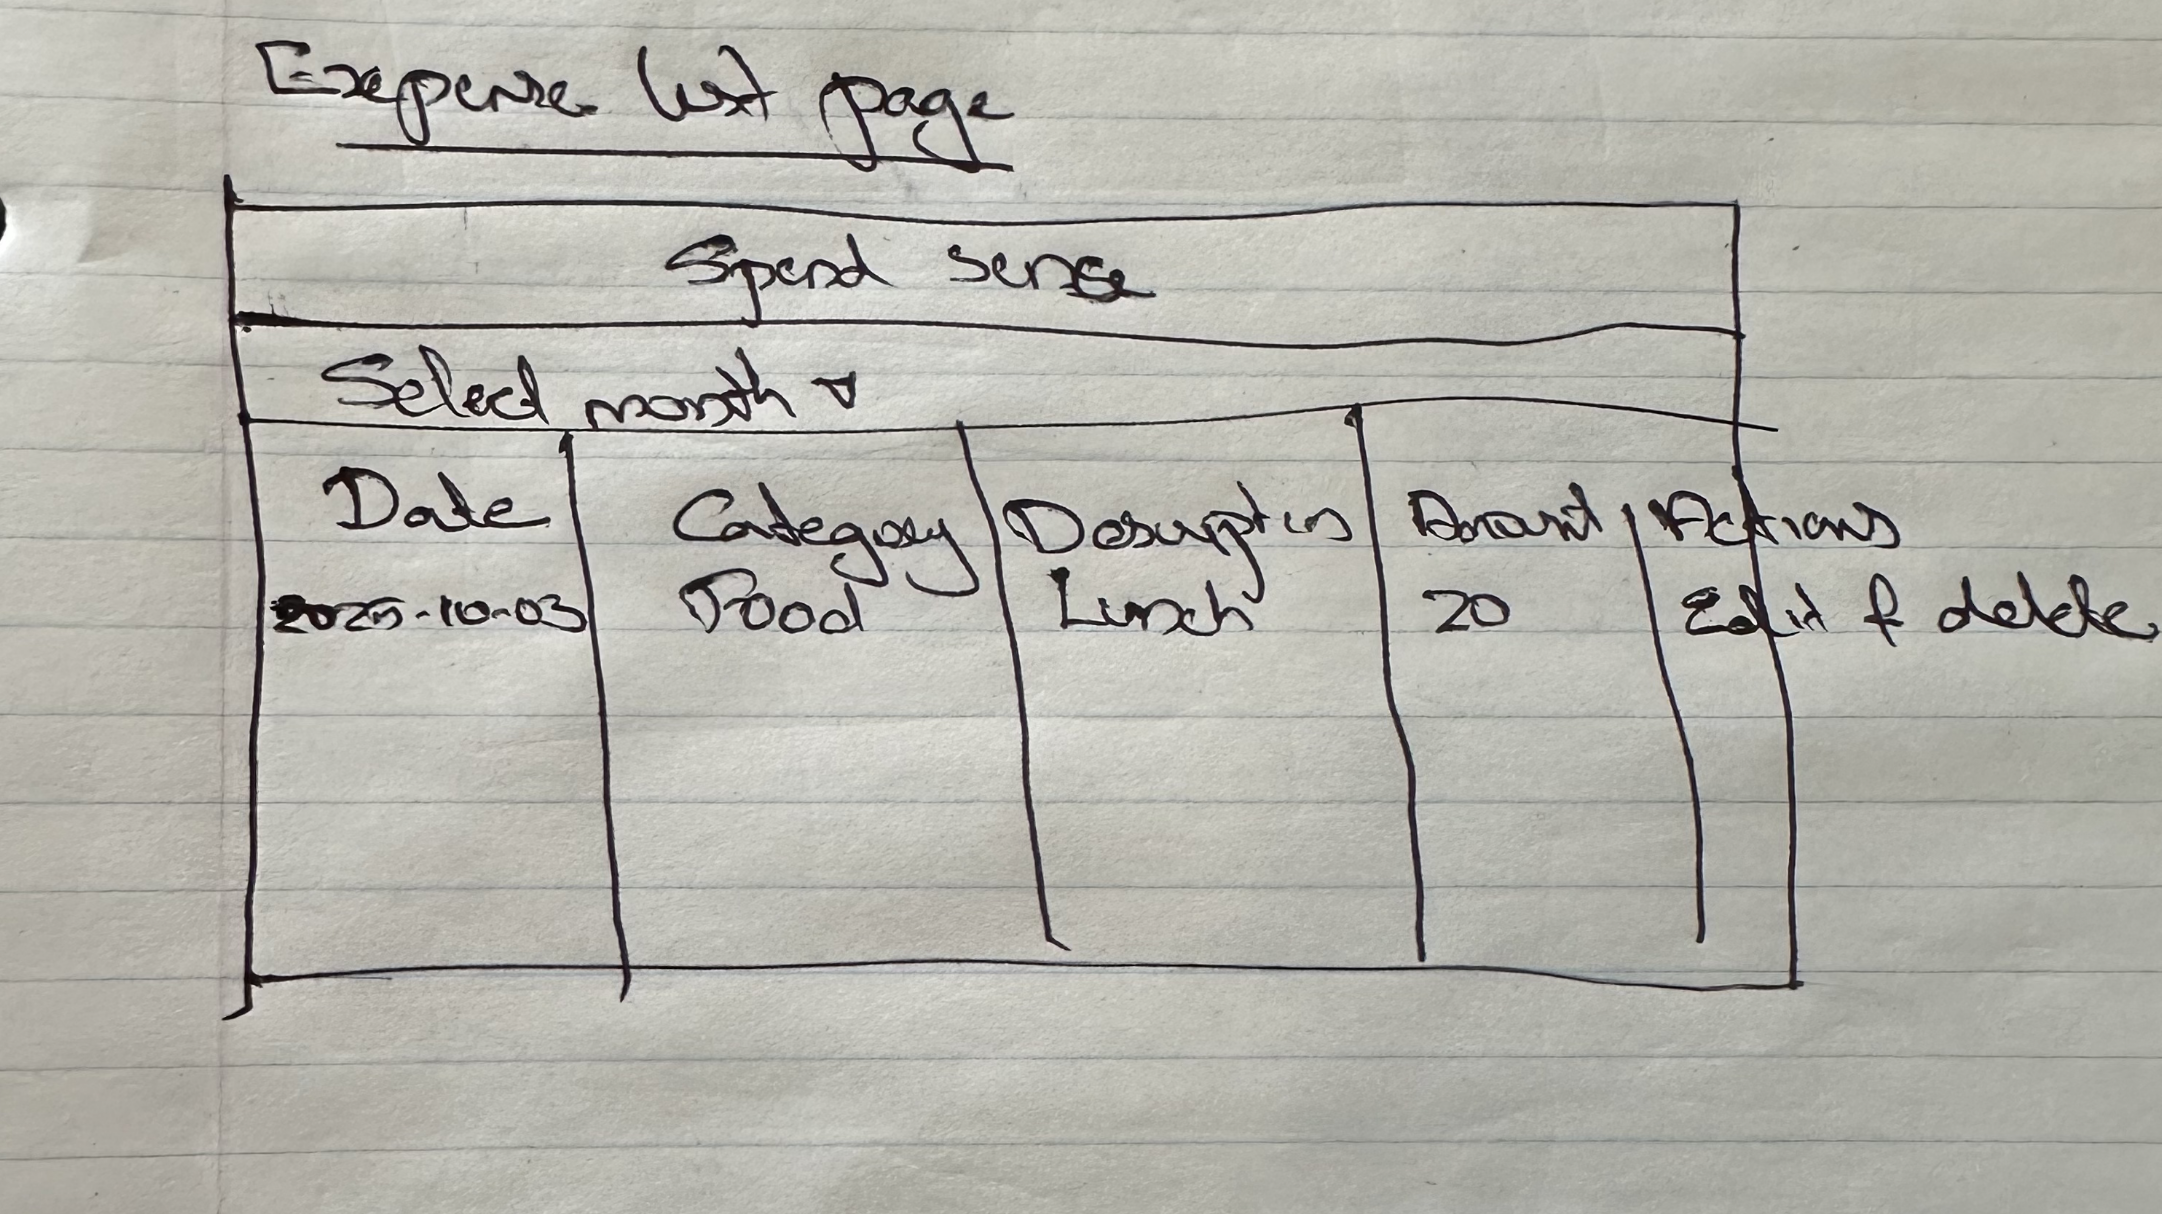 Expense list page
Spend sense
Select month ▾
Date Category Description Amount Actions
2025-10-03 Food Lunch 20 Edit & delete